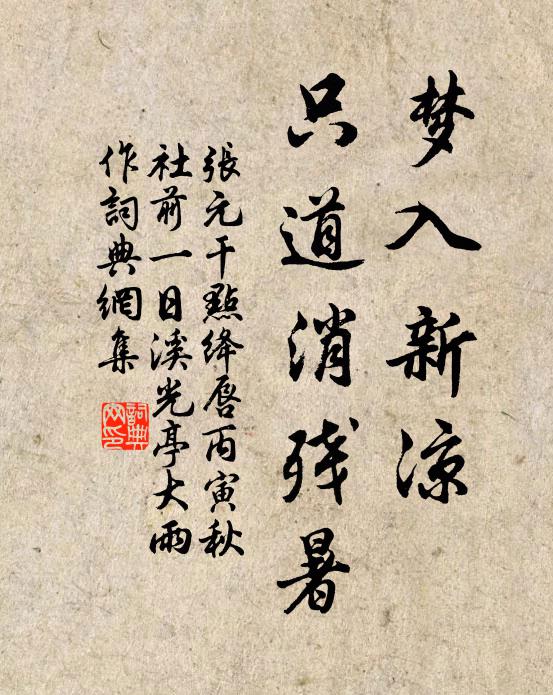 梦入新凉
只道消残暑
張元干點绛唇丙寅秋
社前一日溪光亭大雨
作詞典網集
詞典
网印